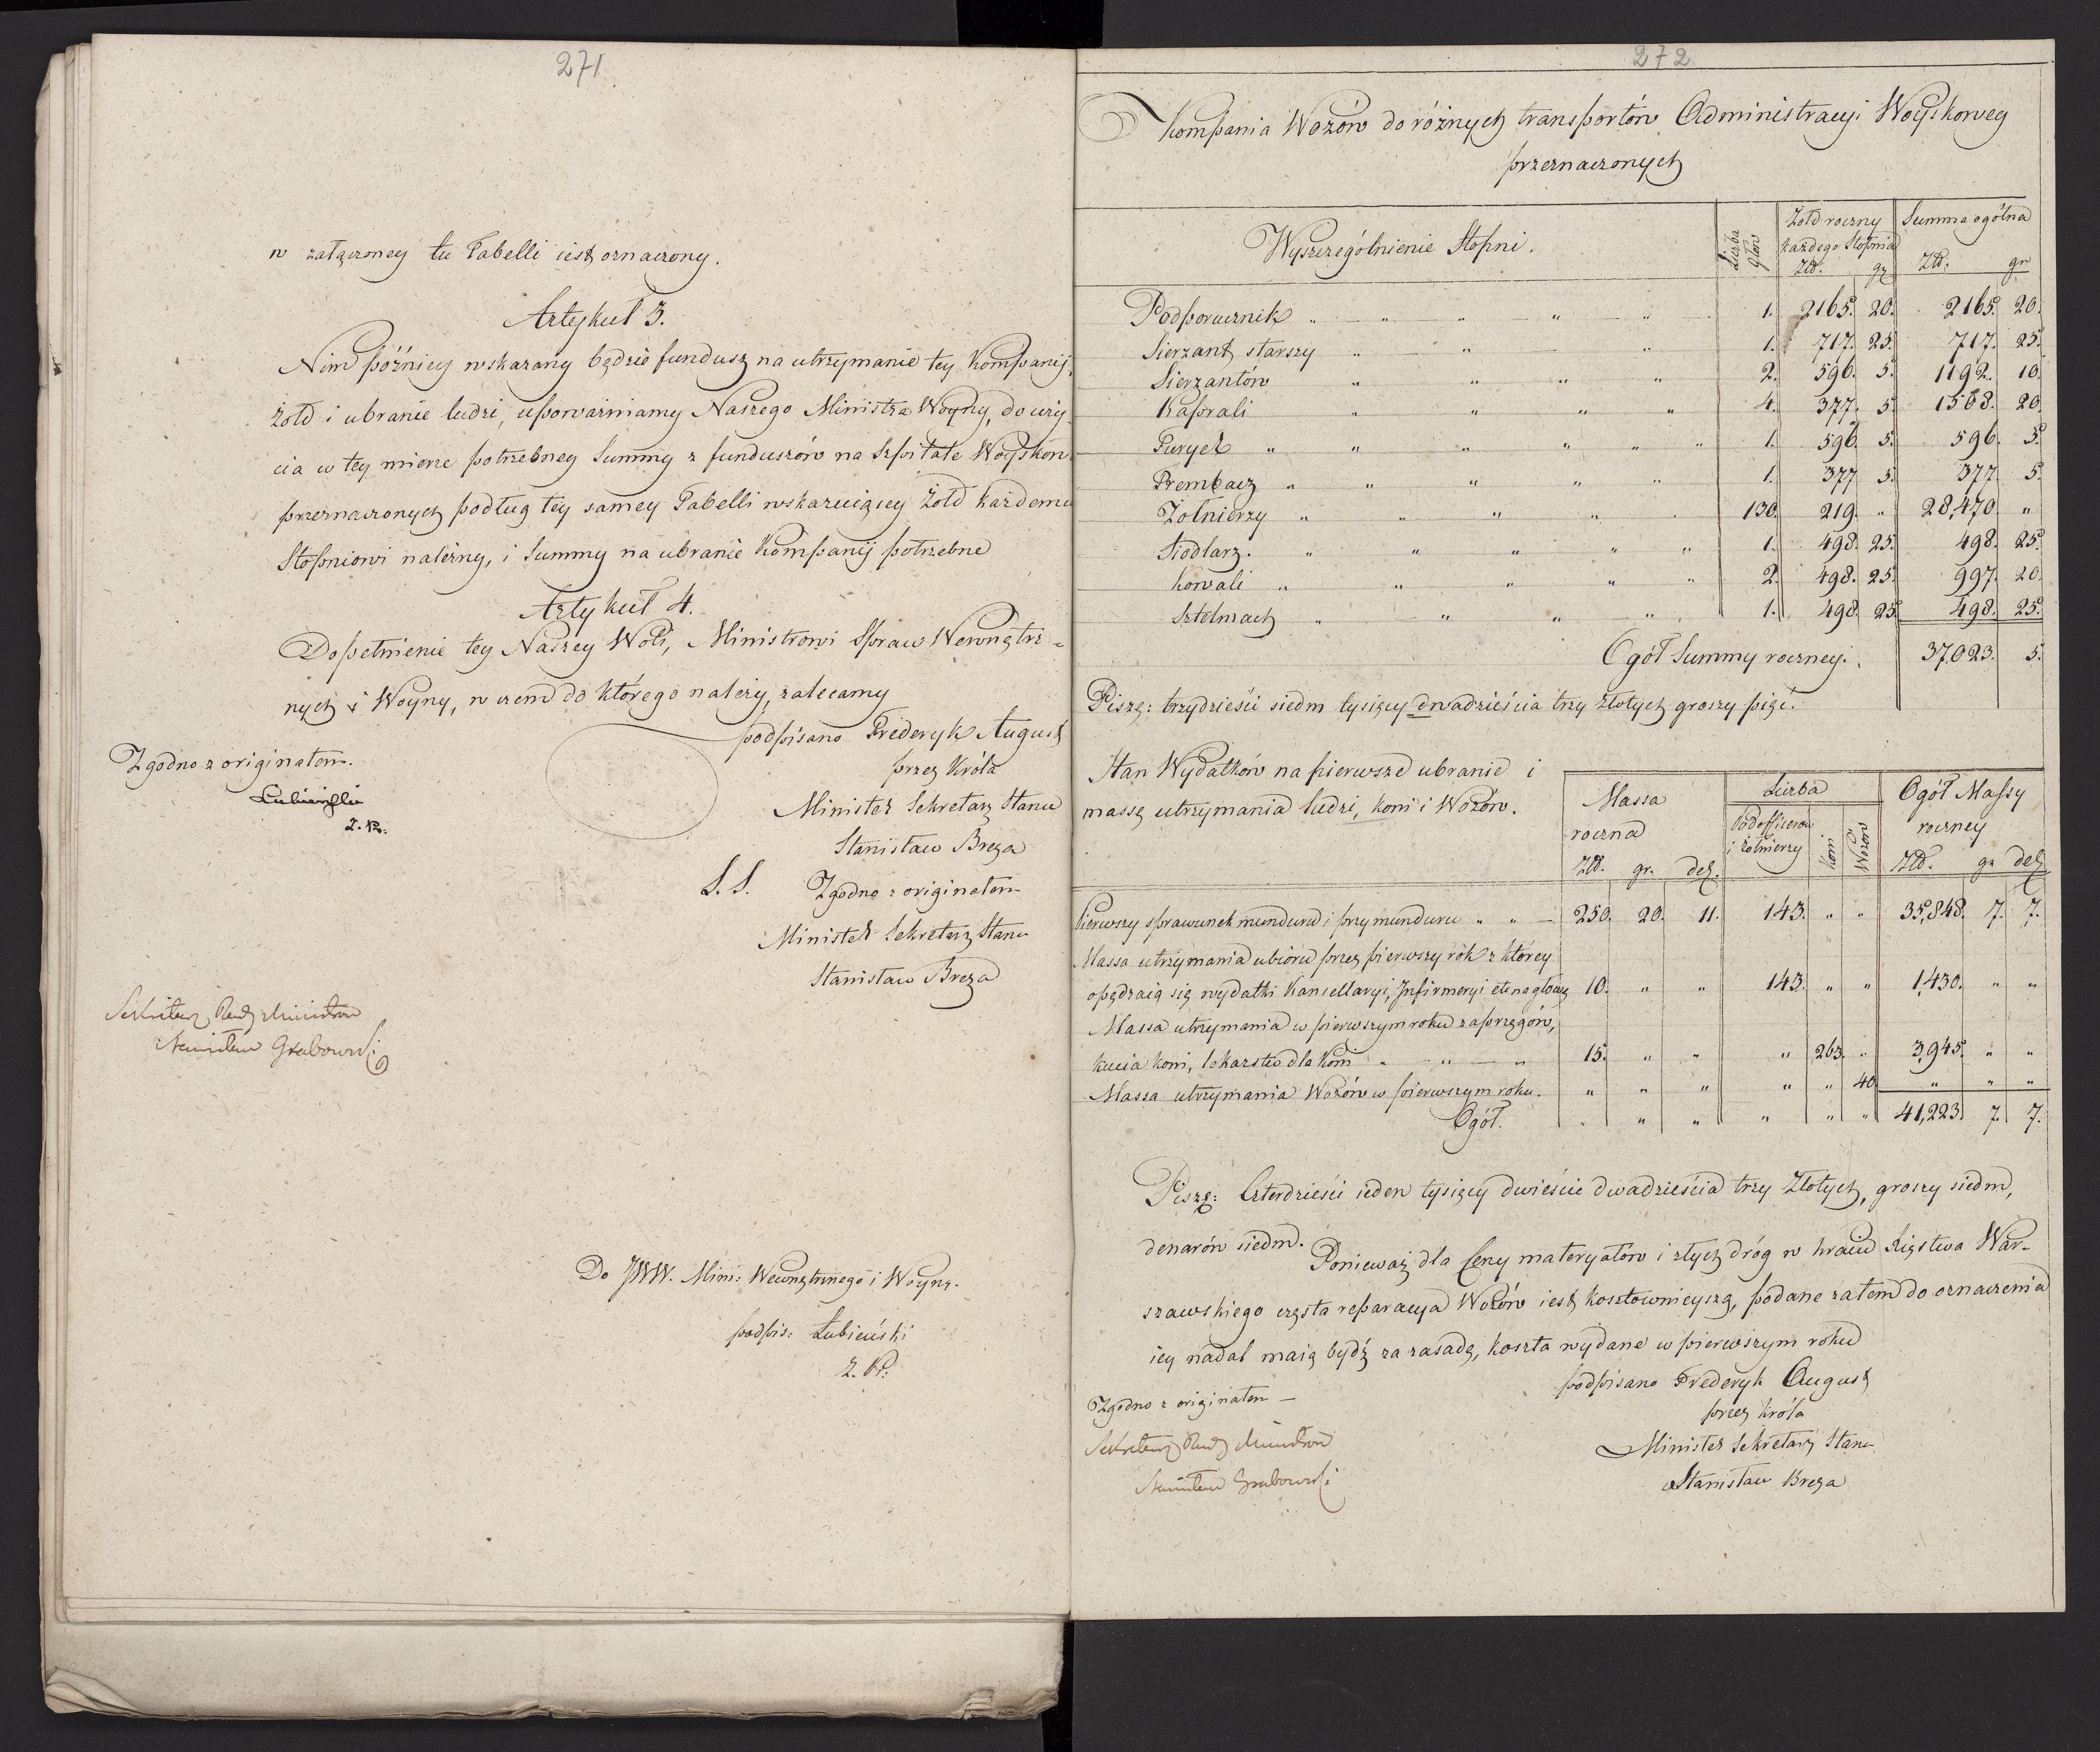 271
w załączoney tu Tabelli iest oznaczony.
Artykuł 3.
Nim późniey wskazany będzie fundusz na utrzymanie tey Kompanij,
żołd i ubranie ludzi, upoważniamy Naszego Ministra Woyny, do uży-
cia w tey mierze potrzebney Summy z funduszów na Szpitale Woyskow
przeznaczonych podług tey samey Tabelli wskazuiącey Żołd każdemu
Stopniowi należny, i Summy na ubranie Kompanij potrzebne
Artykuł 4.
Dopełnienie tey Naszey Woli, Ministrowi Spraw Wewnętrz-
nych i Woyny, w czem do którego należy, zalecamy
podpisano Frederyk August
przez Króla
Minister Sekretarz Stanu
Stanisław Breza
L.S. Zgodno z originałem
Minister Sekretarz Stanu
Stanisław Breza
Zgodno z originałem.
Łubieński
Z. P.
Sekretarz Rady Ministrów
Stanisław Grabowski
Do JWW. Mini: Wewnętrznego i Woyny.
podpis: Łubieński
Z. P.
272
Kompania Wozów do różnych transportów Administracyi Woyskowey
przeznaczonych
Wyszczególnienie Stopni. Liczba głów Żołd roczny każdego Stopnia Złł. gr Summa ogólna Złł. gr
Podporucznik " " " " " 1. 2165. 20. 2165. 20.
Sierżant starszy " " " 1. 717. 25. 717. 25.
Sierżantów " " " " 2. 596. 5. 1192. 10.
Kaprali " " " " 4. 377. 5. 1508. 20.
Furyer " " " " " " 1. 596. 5. 596. 5.
Trembacz " " " " " 1. 377 5. 377. 5.
Żołnierzy " " " " " 130. 219. " 28,470 "
Siodlarz. " " " " " 1. 498. 25. 498. 25.
Kowali " " " " " 2. 498. 25. 997. 20.
Sztelmach " " " " 1. 498. 25. 498. 25.
Ogół Summy roczney. 37,023. 5.
Piszę: trzydzieści siedm tysięcy dwadzieścia trzy złotych groszy pięć.
Stan Wydatków na pierwsze ubranie i
massę utrzymania ludzi, koni i Wozów.
Massa roczna Złł. gr. de. Liczba Podofficerów i żołnierzy Koni Wozów Ogół Massy roczney Złł. gr de
Pierwszy sprawunek munduru i przymunduru " " 250. 20. 11. 143. " " 35,848. 7. 7.
Massa utrzymania ubioru przez pierwszy rok z którey
opędzaią się wydatki Kancellaryi, Infirmeryi etc na głowę 10. " " 143. " " 1,430. " "
Massa utrzymania w pierwszym roku zaprzęgów,
kucia koni, lekarstw dla Koni " " " 15. " " " 263. " 3,945. " "
Massa utrzymania Wozów w pierwszym roku. " " " " " 40 " " "
Ogół. " " " " " " 41,223. 7. 7.
Piszę: Czterdzieści ieden tysięcy dwieście dwadzieścia trzy Złotych, groszy siedm,
denarów siedm.
Ponieważ dla Ceny materyałów i złych dróg w kraiu Xięstwa War-
szawskiego częsta reparacya Wozów iest kosztownieyszą, podane zatem do oznaczenia
iey nadal maią bydź za zasadę, koszta wydane w pierwszym roku
podpisano Frederyk August
przez Króla
Minister Sekretarz Stanu
Stanisław Breza
Zgodno z originałem —
Sekretarz Rady Ministrów
Stanisław Grabowski